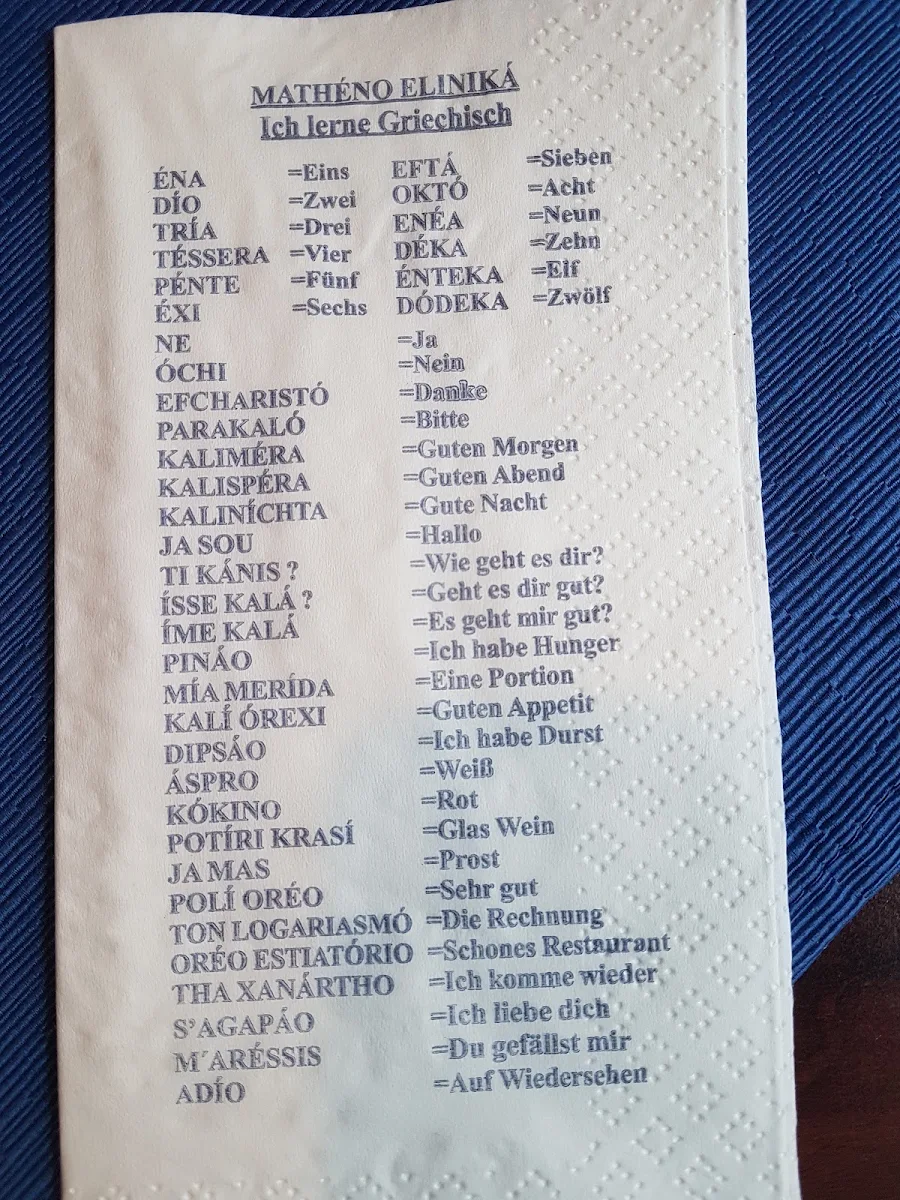 MATHÉNO ELINIKÁ
Ich lerne Griechisch
ÉNA =Eins EFTÁ =Sieben
DÍO =Zwei OKTÓ =Acht
TRÍA =Drei ENÉA =Neun
TÉSSERA =Vier DÉKA =Zehn
PÉNTE =Fünf ÉNTEKA =Elf
ÉXI =Sechs DÓDEKA =Zwölf
NE =Ja
ÓCHI =Nein
EFCHARISTÓ =Danke
PARAKALÓ =Bitte
KALIMÉRA =Guten Morgen
KALISPÉRA =Guten Abend
KALINÍCHTA =Gute Nacht
JA SOU =Hallo
TI KÁNIS ? =Wie geht es dir?
ÍSSE KALÁ ? =Geht es dir gut?
ÍME KALÁ =Es geht mir gut?
PINÁO =Ich habe Hunger
MÍA MERÍDA =Eine Portion
KALÍ ÓREXI =Guten Appetit
DIPSÁO =Ich habe Durst
ÁSPRO =Weiß
KÓKINO =Rot
POTÍRI KRASÍ =Glas Wein
JA MAS =Prost
POLÍ ORÉO =Sehr gut
TON LOGARIASMÓ =Die Rechnung
ORÉO ESTIATÓRIO =Schones Restaurant
THA XANÁRTHO =Ich komme wieder
S’AGAPÁO =Ich liebe dich
M´ARÉSSIS =Du gefällst mir
ADÍO =Auf Wiedersehen